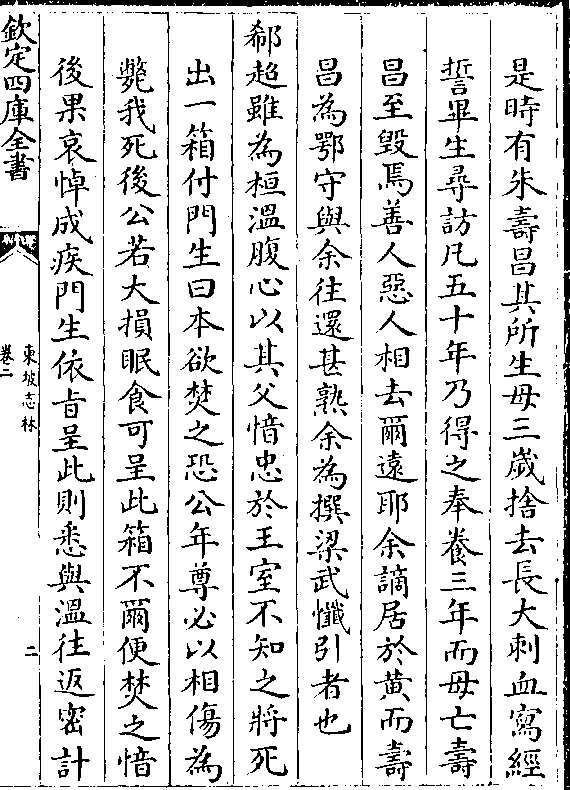 是時有朱壽昌其所生母三歲捨去長大刺血寫經
誓畢生尋訪凡五十年乃得之奉養三年而母亡壽
昌至毀焉善人惡人相去爾遠耶余謫居於黃而壽
昌為鄂守與余往還甚熟余為撰梁武懺引者也
郗超雖為桓溫腹心以其父愔忠於王室不知之將死
出一箱付門生曰本欲焚之恐公年尊必以相傷為
斃我死後公若大損眠食可呈此箱不爾便焚之愔
後果哀悼成疾門生依旨呈此則悉與溫往返密計
欽定四庫全書
東坡志林
卷二
二